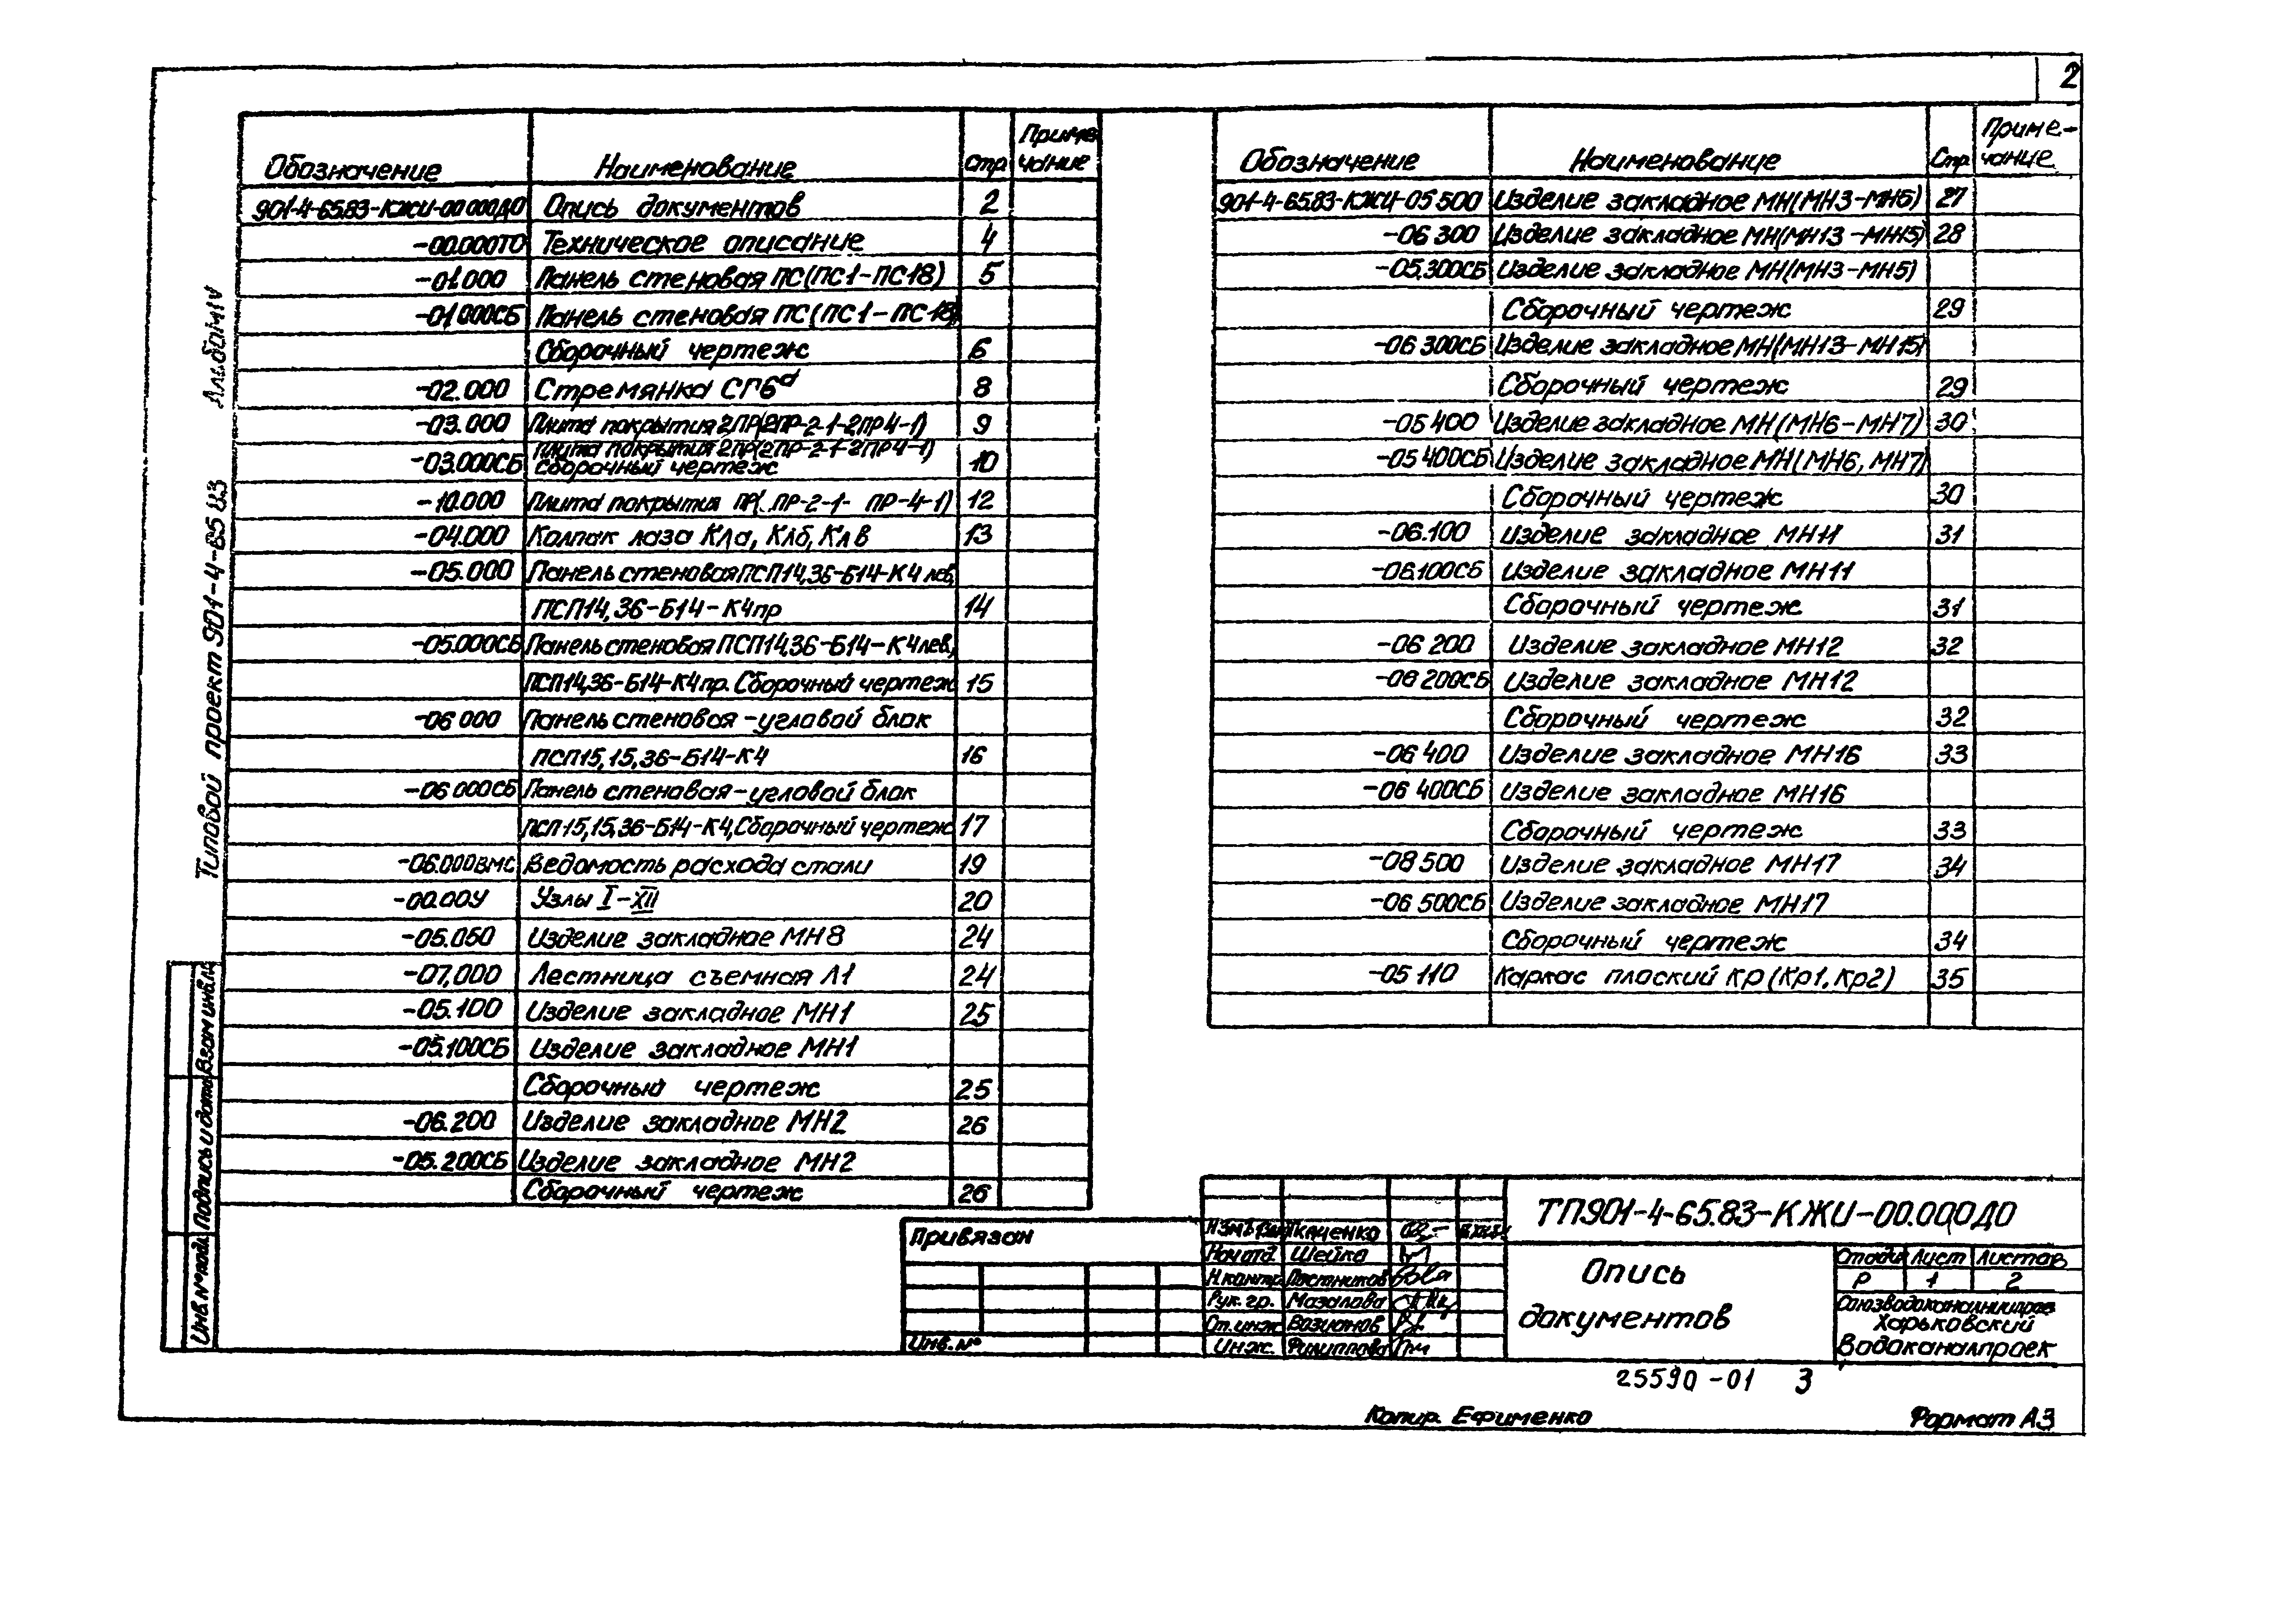 2
Обозначение Наименование Стр Приме чание
901-4-65.83-КЖИ-00.000ДО Опись документов 2
-00.000ТО Техническое описание 4
-01.000 Панель стеновая ПС(ПС1-ПС18) 5
-01.000СБ Панель стеновая ПС(ПС1-ПС18)
Сборочный чертеж 6
-02.000 Стремянка СГ6а 8
-03.000 Плита покрытия 2ПР(2ПР-2-1-2ПР4-1) 9
-03.000СБ Плита покрытия 2ПР(2ПР-2-1-2ПР4-1)
Сборочный чертеж 10
-10.000 Плита покрытия ПР( ПР-2-1- ПР-4-1) 12
-04.000 Колпак лаза Кла, Клб, Клв 13
-05.000 Панель стеновая ПСП14,36-Б14-К4 лев,
ПСП14,36-Б14-К4пр 14
-05.000СБ Панель стеновая ПСП14,36-Б14-К4лев,
ПСП14,36-Б14-К4пр. Сборочный чертеж 15
-06 000 Панель стеновая-угловой блок
ПСП15,15,36-Б14-К4 16
-06 000СБ Панель стеновая-угловой блок
ПСП15,15,36-Б14-К4, Сборочный чертеж 17
-06.000ВМС Ведомость расхода стали 19
-00.00У Узлы I-XII 20
-05.050 Изделие закладное МН8 24
-07,000 Лестница съемная Л1 24
-05.100 Изделие закладное МН1 25
-05.100СБ Изделие закладное МН1
Сборочный чертеж 25
-06.200 Изделие закладное МН2 26
-05.200СБ Изделие закладное МН2
Сборочный чертеж 26
Обозначение Наименование Стр Приме-чание
901-4-65.83-КЖИ-05 500 Изделие закладное МН(МН3-МН5) 27
-06 300 Изделие закладное МН(МН13-МН15) 28
-05.300СБ Изделие закладное МН(МН3-МН5)
Сборочный чертеж 29
-06 300СБ Изделие закладное МН(МН13-МН15)
Сборочный чертеж 29
-05 400 Изделие закладное МН(МН6-МН7) 30
-05 400СБ Изделие закладное МН(МН6, МН7)
Сборочный чертеж 30
-06.100 Изделие закладное МН11 31
-06.100СБ Изделие закладное МН11
Сборочный чертеж 31
-06 200 Изделие закладное МН12 32
-06 200СБ Изделие закладное МН12
Сборочный чертеж 32
-06 400 Изделие закладное МН16 33
-06 400СБ Изделие закладное МН16
Сборочный чертеж 33
-08 500 Изделие закладное МН17 34
-06 500СБ Изделие закладное МН17
Сборочный чертеж 34
-05 110 Каркас плоский КР (Кр1, Кр2) 35
Типовой проект 901-4-65 83 Альбом V
Взам инв.№
Подпись и дата
Инв.№ подл.
Привязан
Инв.№
Ткаченко
Нач отд. Шейко
Н.контр. Постников
Рук. гр. Мазалова
Ст.инж Возианов
Инж. Филиппова
ТП901-4-65.83-КЖИ-00.000ДО
Опись
документов
Стадия Лист Листов
Р 1 2
Союзводоканалниипроек
Харьковский
Водоканалпроек
25590-01 3
Копир. Ефименко Формат А3